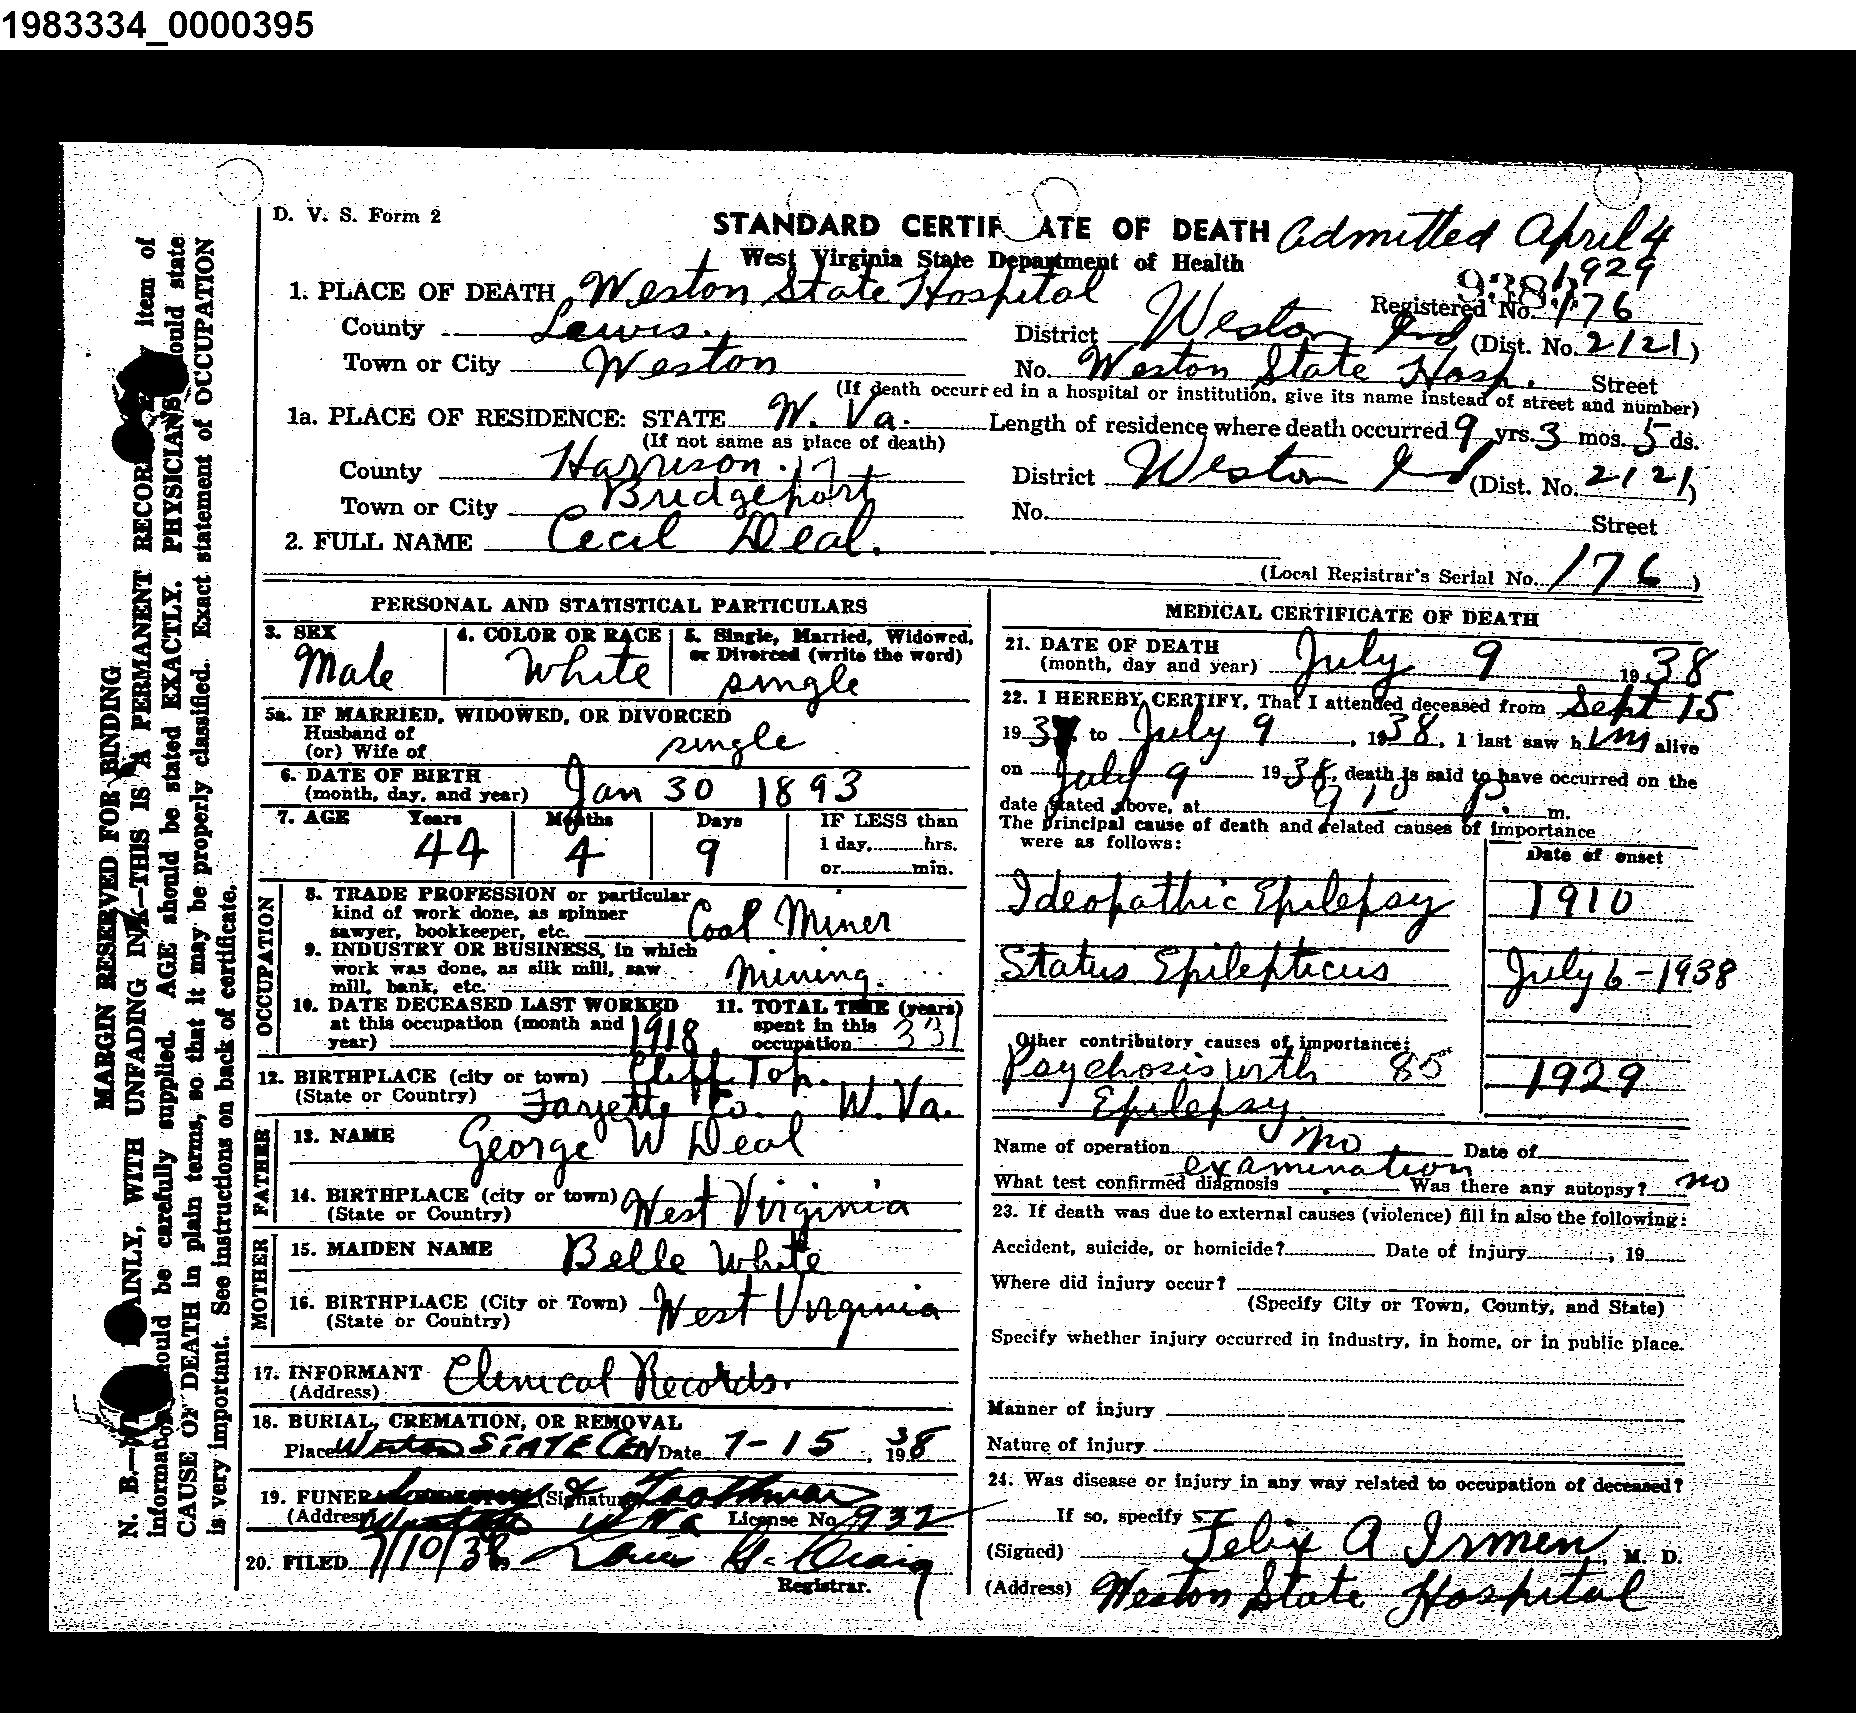 1983334_0000395
D. V. S. Form 2
STANDARD CERTIF ATE OF DEATH Admitted April 4
West Virginia State Department of Health 1929
1. PLACE OF DEATH Weston State Hospital Registered No. 176
County Lewis. District Weston Ind (Dist. No. 2121)
Town or City Weston No. Weston State Hosp. Street
(If death occurred in a hospital or institution, give its name instead of street and number)
1a. PLACE OF RESIDENCE: STATE W. Va. Length of residence where death occurred 9 yrs. 3 mos. 5 ds.
(If not same as place of death)
County Harrison. 17 District Weston Ind (Dist. No. 2121)
Town or City Bridgeport No. Street
2. FULL NAME Cecil Deal.
(Local Registrar's Serial No. 176)
PERSONAL AND STATISTICAL PARTICULARS
3. SEX Male
4. COLOR OR RACE White
5. Single, Married, Widowed, or Divorced (write the word) single
5a. IF MARRIED, WIDOWED, OR DIVORCED
Husband of
(or) Wife of single
6. DATE OF BIRTH
(month, day, and year) Jan 30 1893
7. AGE Years 44 Months 4 Days 9 IF LESS than
1 day, hrs.
or min.
OCCUPATION
8. TRADE PROFESSION or particular
kind of work done, as spinner
sawyer, bookkeeper, etc. Coal Miner
9. INDUSTRY OR BUSINESS, in which
work was done, as silk mill, saw
mill, bank, etc. Mining.
10. DATE DECEASED LAST WORKED
at this occupation (month and
year) 1918
11. TOTAL TIME (years)
spent in this
occupation
12. BIRTHPLACE (city or town) Cliff Top.
(State or Country) Fayette Co. W. Va.
FATHER
13. NAME George W Deal
14. BIRTHPLACE (city or town) West Virginia
(State or Country)
MOTHER
15. MAIDEN NAME Belle White
16. BIRTHPLACE (City or Town) West Virginia
(State or Country)
17. INFORMANT Clinical Records.
(Address)
18. BURIAL, CREMATION, OR REMOVAL
Place Weston STATE CEM Date 7-15, 1938
19. FUNERAL (Signature)
(Address) W Va License No. 932
20. FILED 7/10/38 Louis H. Craig
Registrar.
MEDICAL CERTIFICATE OF DEATH
21. DATE OF DEATH
(month, day and year) July 9 1938
22. I HEREBY CERTIFY, That I attended deceased from Sept 15
193 to July 9, 1938, I last saw him alive
on July 9 1938, death is said to have occurred on the
date stated above, at m.
The principal cause of death and related causes of importance
were as follows:
Date of onset
Ideopathic Epilepsy 1910
Status Epilepticus July 6-1938
Other contributory causes of importance:
Psychosis with 85 1929
Epilepsy.
Name of operation no Date of
What test confirmed diagnosis examination Was there any autopsy? no
23. If death was due to external causes (violence) fill in also the following:
Accident, suicide, or homicide? Date of injury, 19
Where did injury occur?
(Specify City or Town, County, and State)
Specify whether injury occurred in industry, in home, or in public place.
Manner of injury
Nature of injury
24. Was disease or injury in any way related to occupation of deceased?
If so, specify
(Signed) Felix A Irmen, M. D.
(Address) Weston State Hospital
MARGIN RESERVED FOR BINDING
N. B.— AINLY, WITH UNFADING INK—THIS IS A PERMANENT RECOR item of
information should be carefully supplied. AGE should be stated EXACTLY. PHYSICIANS should state
CAUSE OF DEATH in plain terms, so that it may be properly classified. Exact statement of OCCUPATION
is very important. See instructions on back of certificate.